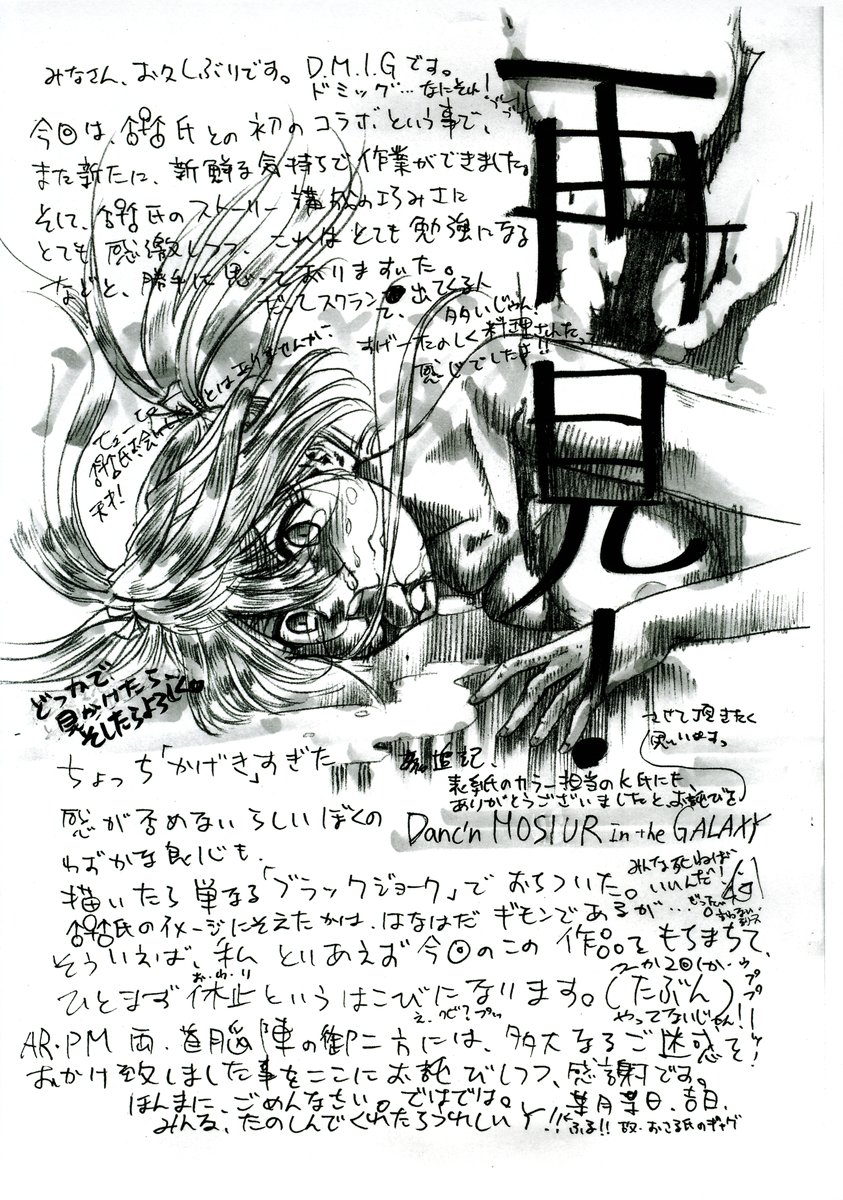 みなさん、お久しぶりです。D.M.I.Gです。
ドミッグ…なにそれ!
今回は、氏との初のコラボという事で、
また新たに、新鮮な気持ちで作業ができました。
そして、氏のストーリー構成の巧みさに
とても感激しつつ、これはとても勉強になる
などと、勝手に思っておりますいた。
だってスクラン出てくる人
て、多いじゃん!
すげーたのしく料理されたっ
感じでしたよ!!
とはありませんが、
天才!
再見!
どっかで
見かけたら、
そしたらよろしく。
させて頂きたく
思いいます。
追記、
表紙のカラー担当のK氏にも、
ありがとうございましたと、お詫びを
ちょっち「かげき」すぎた
感が否めないらしいぼくの
Danc'n MOSIUR in the GALAXY
わずかな良心も、
みんな死ねば
いいんだ!
描いたら単なる「ブラックジョーク」でおちついた。
氏のイメージにそえたかは、はなはだギモンであるが…。
そういえば、私 とりあえず今回のこの作品をもちまちて、
お・わ・り
ひとまず休止というはこびになります。(たぶん)
やってないじゃん!!
え、クビ?プッ
AR・PM両・首脳陣の御二方には、多大なるご迷惑を
おかけ致しました事をここにお詫びしつつ、感謝です。
ほんまに、ごめんなさい。ではでは。
葉月葉日、吉日、
みんな、たのしんでくれたらうれしいY!!
ふる!! 故・おこる氏のギャグ